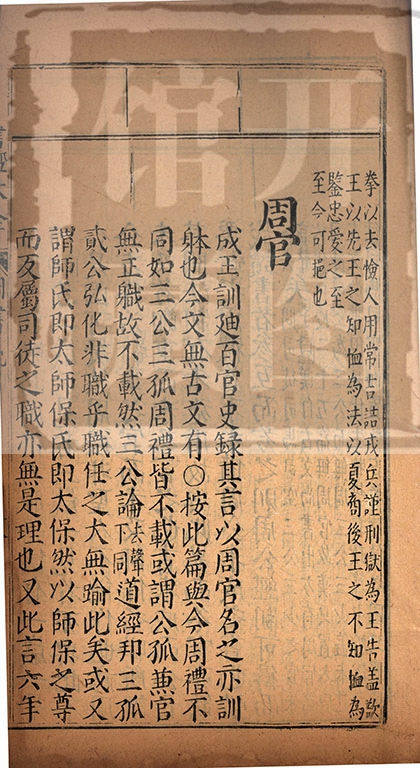 拳以去憸人用常吉詰戎兵謹刑獄為王告盖歎
王以先王之知恤為法以夏商後王之不知恤為
鑒忠愛之至
至今可挹也
周官
成王訓廸百官史録其言以周官名之亦訓
躰也今文無古文有○按此篇與今周禮不
同如三公三孤周禮皆不載或謂公孤兼官
無正職故不載然三公論去聲下同道經邦三孤
貳公弘化非職乎職任之大無踰此矣或又
謂師氏即太師保氏即太保然以師保之尊
而反屬司徒之職亦無是理也又此言六年
書經大全